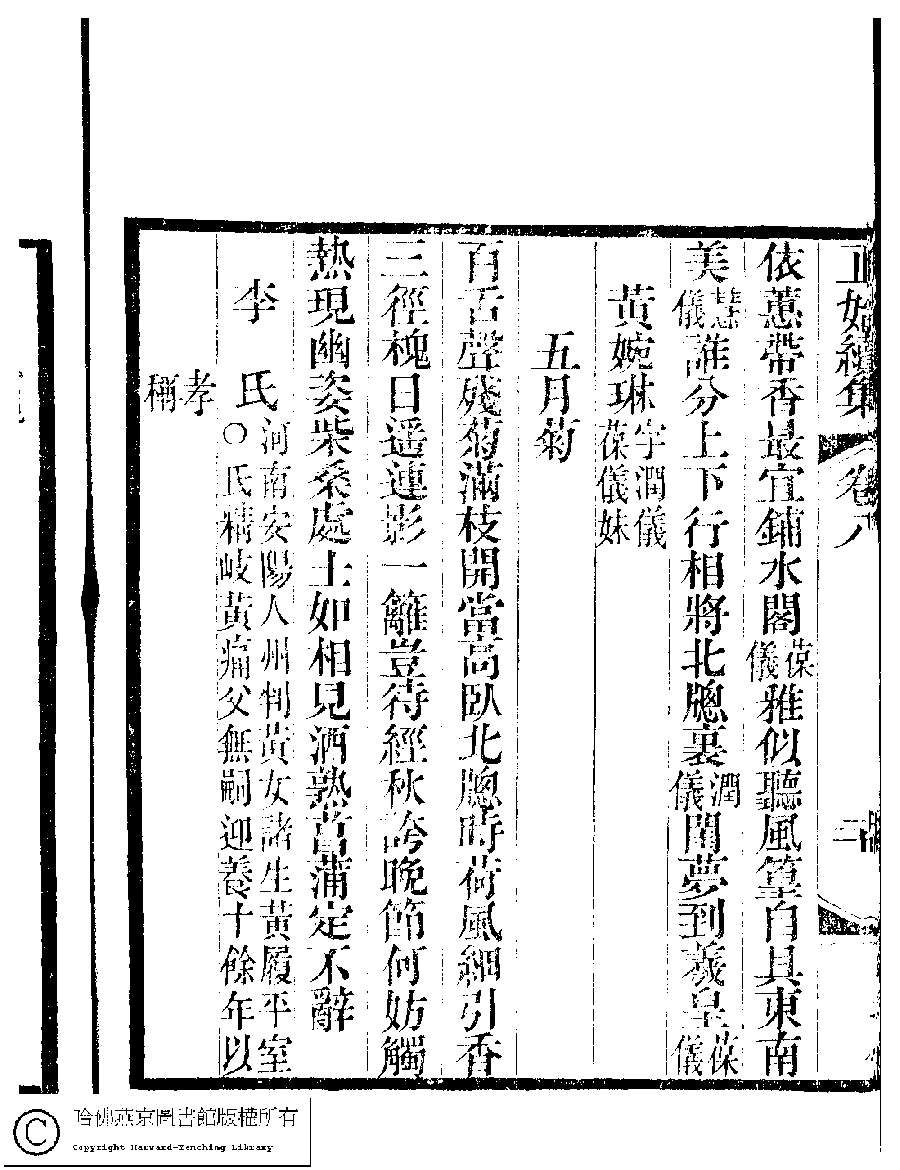 正始續集 卷八 二
依蕙帶香最宜鋪水閣葆儀雅似聽風篁自具東南
美慧儀誰分上下行相將北牕裏潤儀閒夢到羲皇葆儀
黃婉琳字潤儀葆儀妹
五月菊
百舌聲殘菊滿枝開當高臥北牕時荷風細引香
三徑槐日遥連影一籬豈待經秋誇晚節何妨觸
熱現幽姿柴桑處士如相見酒熟菖蒲定不辭
李氏河南安陽人州判黃女諸生黃履平室
○氏精岐黃痛父無嗣迎養十餘年以
孝
稱
哈佛燕京圖書館版權所有
Copyright Harvard-Yenching Library